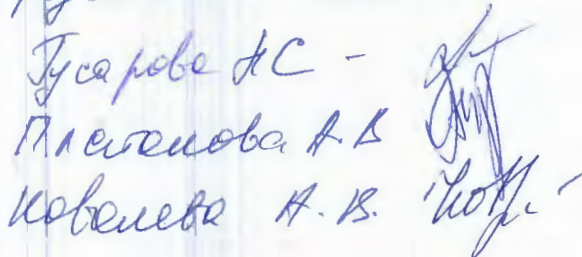 Гусарова НС -
Платонова А.В
Ковалева А.В.